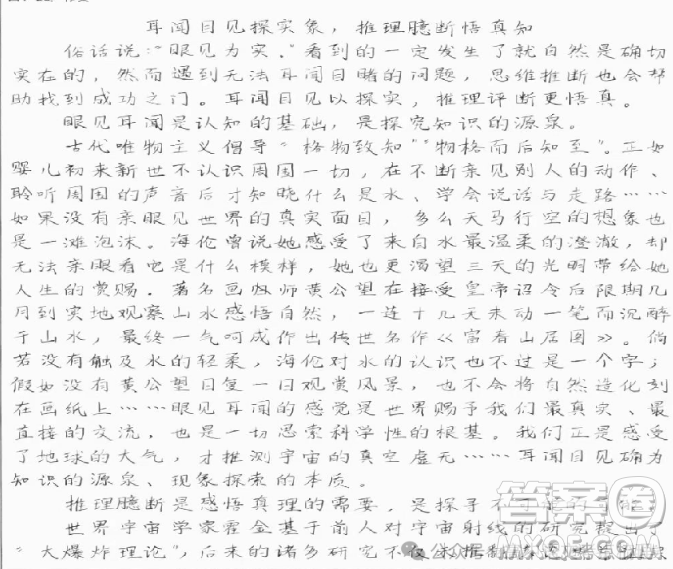 耳闻目见探实象，推理臆断悟真知
俗话说："眼见为实。"看到的一定发生了就自然是确切
实在的，然而遇到无法耳闻目睹的问题，思维推断也会帮
助找到成功之门。耳闻目见以探实，推理评断更悟真。
眼见耳闻是认知的基础，是探究知识的源泉。
古代唯物主义倡导"格物致知""物格而后知至"。正如
婴儿初来新世不认识周围一切，在不断亲见别人的动作、
聆听周围的声音后才知晓什么是水、学会说话与走路……
如果没有亲眼见世界的真实面目，多么天马行空的想象也
是一滩泡沫。海伦曾说她感受了来自水最温柔的澄澈，却
无法亲眼看它是什么模样，她也更渴望三天的光明带给她
人生的赏赐。著名画师黄公望在接受皇帝诏令后限期几
月到实地观察山水感悟自然，一连十几天未动一笔而沉醉
于山水，最终一气呵成作出传世名作《富春山居图》。倘
若没有触及水的轻柔，海伦对水的认识也不过是一个字；
假如没有黄公望日复一日观赏风景，也不会将自然造化刻
在画纸上……眼见耳闻的感觉是世界赐予我们最真实、最
直接的交流，也是一切思索科学性的根基。我们正是感受
了地球的大气，才推测宇宙的真空虚无……耳闻目见确为
知识的源泉、现象探索的本质。
推理臆断是感悟真理的需要，是探寻不
世界宇宙学家霍金基于前人对宇宙射线的研究提出
"大爆炸理论"，后来的诸多研究不
答案圈
MXQE.COM
公众号